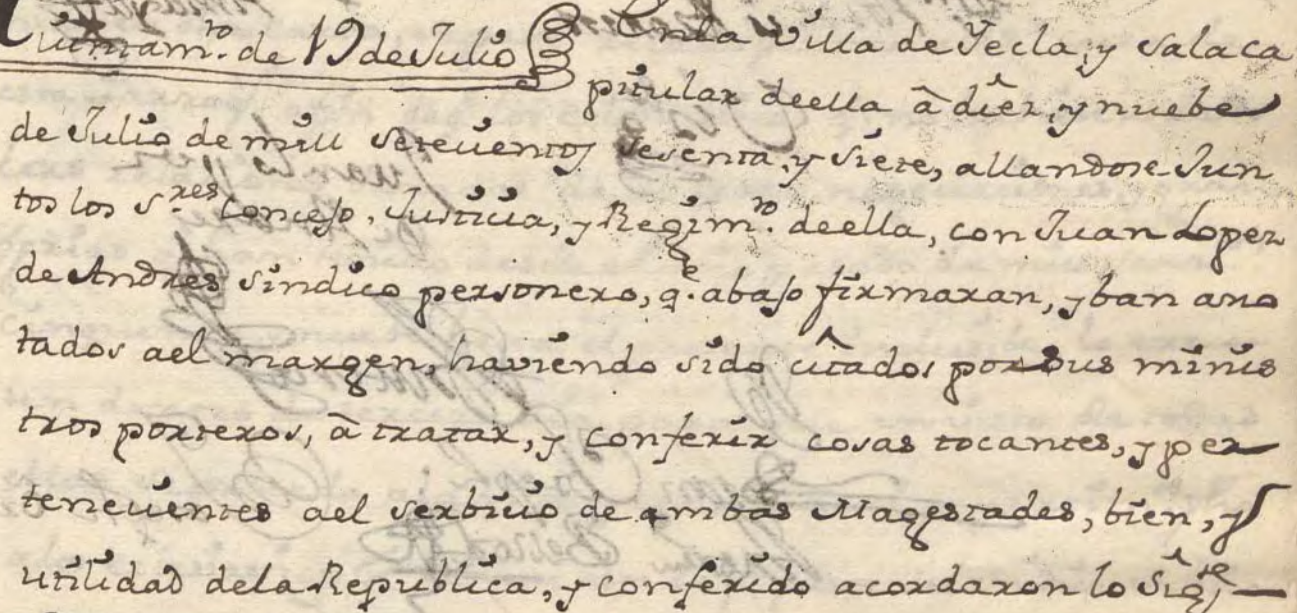 Aiuntam.to de 19 de Julio En la Villa de Yecla, y sala ca
pitular de ella â diêz, y nuebe
de Julio de mill setecientos sesenta, y siete, allandose Jun
tos los S.res Concejo, Justicia, y Regim.to de ella, con Juan Lopez
de Andres sindico personero, q.e abajo firmaran, y ban ano
tados ael margen, haviendo sido citados por sus minis
tros porteros, â tratar, y conferir cosas tocantes, y per
tenecientes ael serbicio de ambas Magestades, bien, y
utilidad dela Republica, y conferido acordaron lo sig.te —